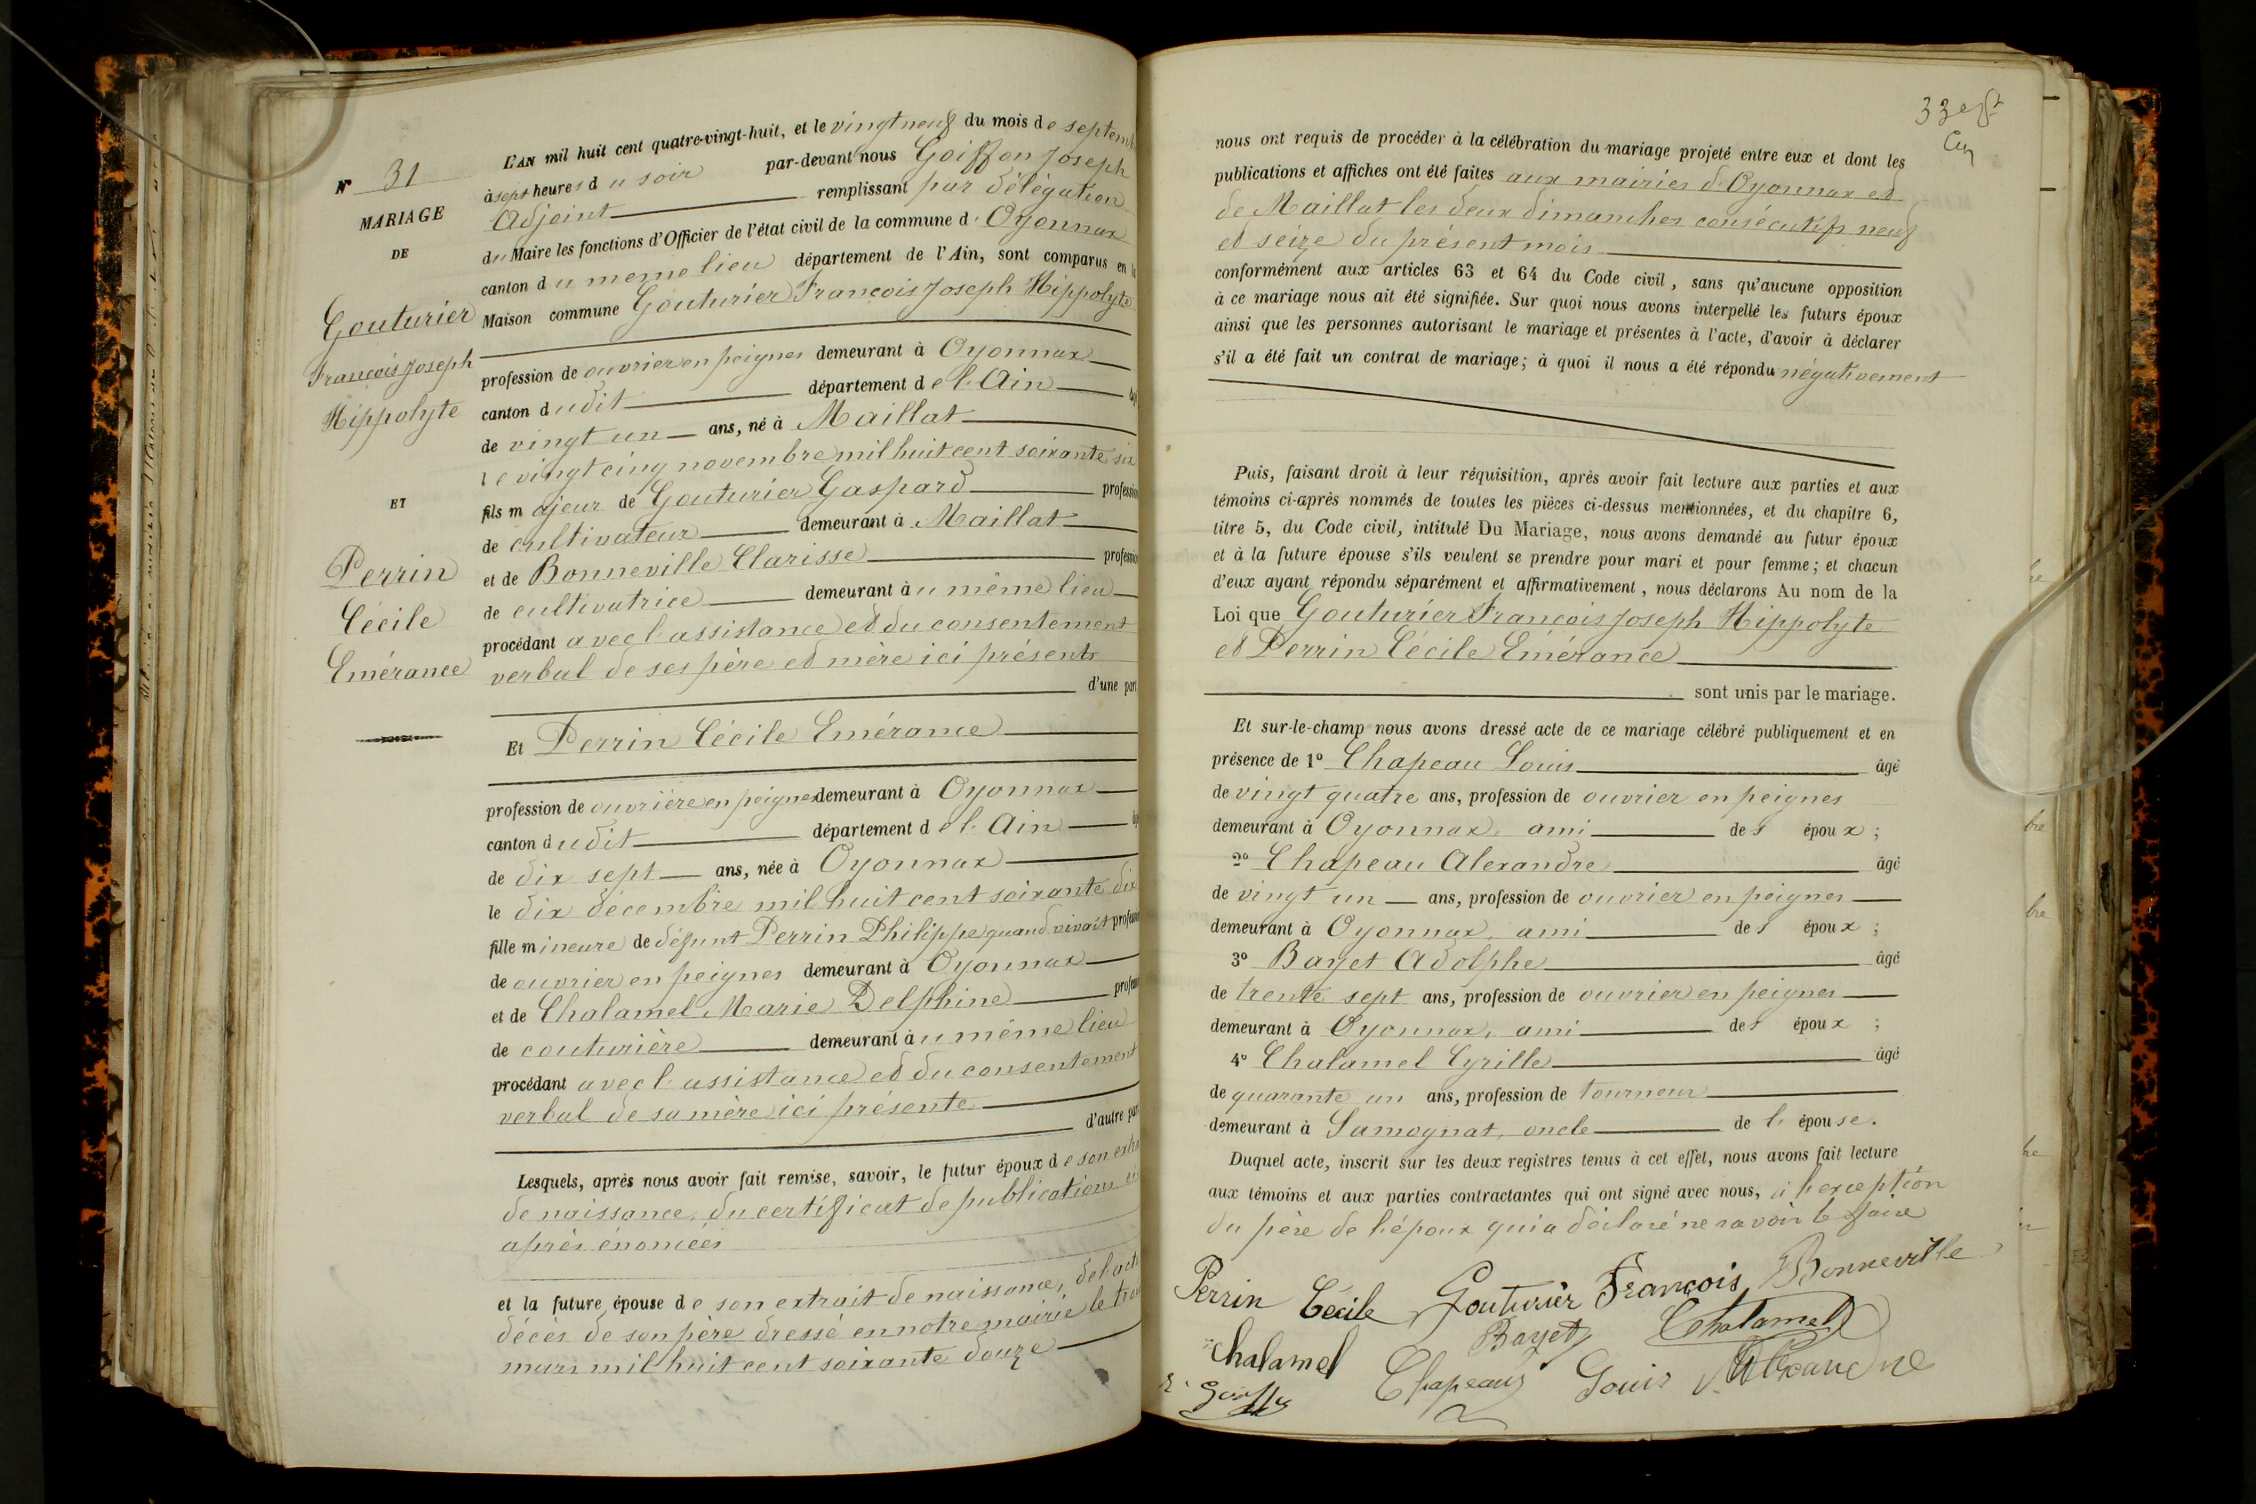 N° 31
MARIAGE
DE
Gouturier
François Joseph
Hippolyte
ET
Perrin
Cécile
Emérance
L'AN mil huit cent quatre-vingt-huit, et le vingt neuf du mois de septemb
à sept heures du soir par-devant nous Goiffon Joseph
Adjoint remplissant par délégation
du Maire les fonctions d'Officier de l'état civil de la commune d'Oyonnax
canton du meme lieu département de l'Ain, sont comparus en la
Maison commune Gouturier François Joseph Hippolyte
profession de ouvrier en peignes demeurant à Oyonnax
canton dudit département de l'Ain âgé
de vingt un ans, né à Maillat
le vingt cinq novembre mil huit cent soixante six
fils majeur de Gouturier Gaspard profession
de cultivateur demeurant à Maillat
et de Bonneville Clarisse profession
de cultivatrice demeurant au même lieu
procédant avec l'assistance et du consentement
verbal de ses père et mère ici présents
d'une part
Et Perrin Cécile Emérance
profession de ouvrière en peignes demeurant à Oyonnax
canton dudit département de l'Ain âg
de dix sept ans, née à Oyonnax
le dix décembre mil huit cent soixante dix
fille mineure de défunt Perrin Philippe quand vivait profession
de ouvrier en peignes demeurant à Oyonnax
et de Chalamel Marie Delphine profess
de couturière demeurant au même lieu
procédant avec l'assistance et du consentement
verbal de sa mère ici présente
d'autre par
Lesquels, après nous avoir fait remise, savoir, le futur époux de son extra
de naissance, du certificat de publications ci
après énoncées
et la future épouse de son extrait de naissance, de l'acte
décès de son père dressé en notre mairie le trois
mars mil huit cent soixante douze
33
nous ont requis de procéder à la célébration du mariage projeté entre eux et dont les
publications et affiches ont été faites aux mairies d'Oyonnax et
de Maillat les deux dimanches consécutifs neuf
et seize du présent mois
conformément aux articles 63 et 64 du Code civil, sans qu'aucune opposition
à ce mariage nous ait été signifiée. Sur quoi nous avons interpellé les futurs époux
ainsi que les personnes autorisant le mariage et présentes à l'acte, d'avoir à déclarer
s'il a été fait un contrat de mariage; à quoi il nous a été répondu négativement
Puis, faisant droit à leur réquisition, après avoir fait lecture aux parties et aux
témoins ci-après nommés de toutes les pièces ci-dessus mentionnées, et du chapitre 6,
titre 5, du Code civil, intitulé Du Mariage, nous avons demandé au futur époux
et à la future épouse s'ils veulent se prendre pour mari et pour femme; et chacun
d'eux ayant répondu séparément et affirmativement, nous déclarons Au nom de la
Loi que Gouturier François Joseph Hippolyte
et Perrin Cécile Emérance
sont unis par le mariage.
Et sur-le-champ nous avons dressé acte de ce mariage célébré publiquement et en
présence de 1° Chapeau Louis âgé
de vingt quatre ans, profession de ouvrier en peignes
demeurant à Oyonnax, ami des époux;
2° Chapeau Alexandre âgé
de vingt un ans, profession de ouvrier en peignes
demeurant à Oyonnax, ami des époux;
3° Bayet Adolphe âgé
de trente sept ans, profession de ouvrier en peignes
demeurant à Oyonnax, ami des époux;
4° Chalamel Cyrille âgé
de quarante un ans, profession de tourneur
demeurant à Samognat, oncle de l'épouse.
Duquel acte, inscrit sur les deux registres tenus à cet effet, nous avons fait lecture
aux témoins et aux parties contractantes qui ont signé avec nous, à l'exception
du père de l'époux qui a déclaré ne savoir le faire
Perrin Cécile Gouturier François Bonneville
Chalamel Bayet Chalamel
Chapeau Louis